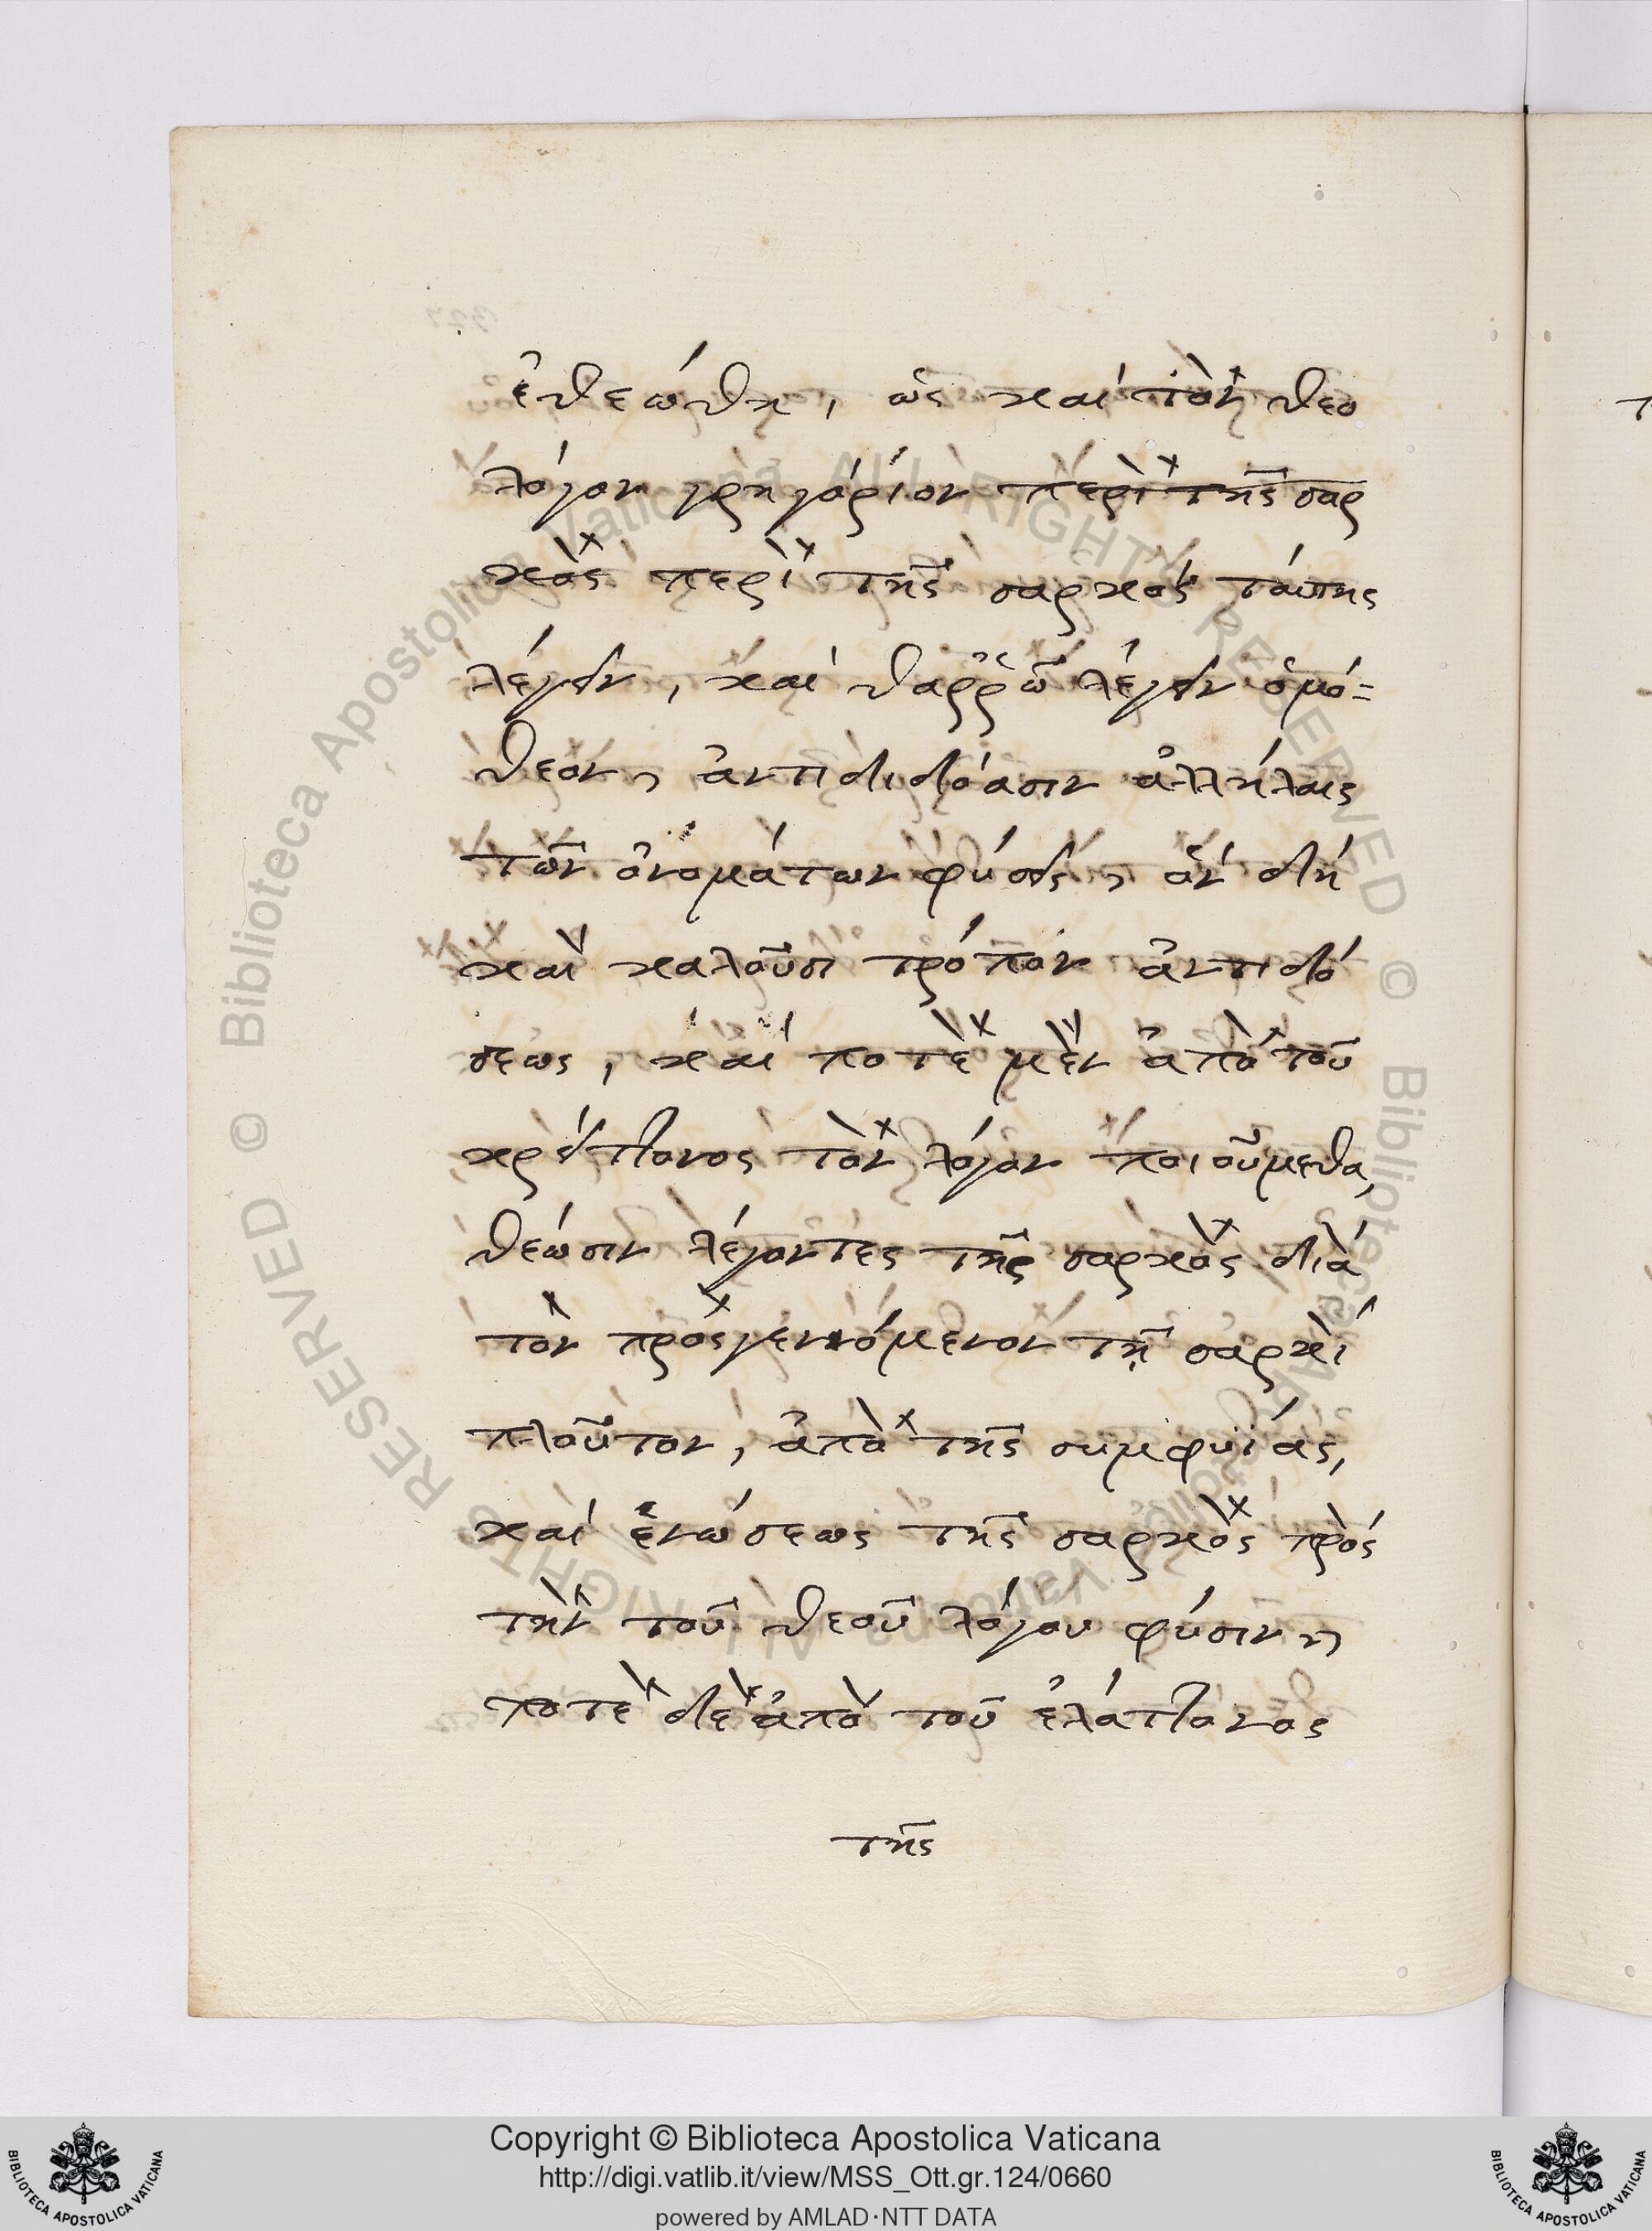 ἐθεώθη, ὡς καὶ τὸν θεο
λόγον γρηγόριον περὶ τῆς σαρ
κὸς περὶ τῆς σαρκὸς ταύτης
λέγειν, καὶ θαῤῥῶ λέγειν ὁμό=
θεον, ἀντιδιδόασιν ἀλλήλαις
τῶν ὀνομάτων φύσεις, ὃν δή
καὶ καλοῦσι τρόπον ἀντιδό
σεως, καὶ ποτὲ μὲν ἀπὸ τοῦ
κρείττονος τὸν λόγον ποιοῦμεθα,
θέωσιν λέγοντες τῆς σαρκὸς διὰ
τὸν προσγενόμενον τῇ σαρκὶ
πλοῦτον, ἀπὸ τῆς συμφυΐας,
καὶ ἑνώσεως τῆς σαρκὸς πρὸς
τὴν τοῦ θεοῦ λόγου φύσιν,
ποτὲ δὲ ἀπὸ τοῦ ἐλάττονος
τῆς
© Biblioteca Apostolica Vaticana ALL RIGHTS RESERVED
Copyright © Biblioteca Apostolica Vaticana
http://digi.vatlib.it/view/MSS_Ott.gr.124/0660
powered by AMLAD·NTT DATA
BIBLIOTECA APOSTOLICA VATICANA
BIBLIOTECA APOSTOLICA VATICANA